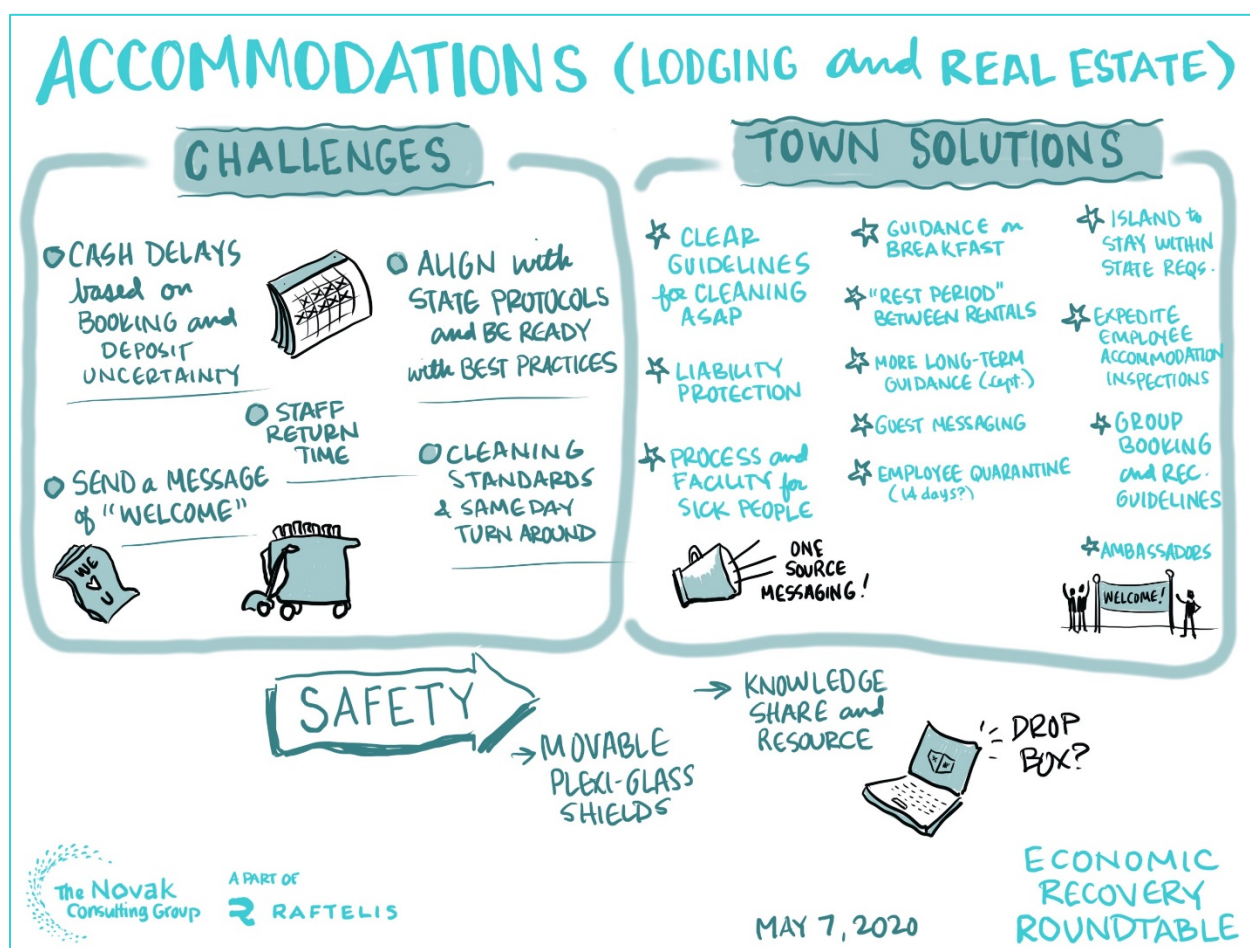 ACCOMMODATIONS (LODGING and REAL ESTATE)
CHALLENGES
CASH DELAYS
based on
BOOKING and
DEPOSIT
UNCERTAINTY
ALIGN with
STATE PROTOCOLS
and BE READY
with BEST PRACTICES
STAFF
RETURN
TIME
SEND a MESSAGE
of "WELCOME"
CLEANING
STANDARDS
& SAME DAY
TURN AROUND
WE
U
TOWN SOLUTIONS
CLEAR
GUIDELINES
for CLEANING
ASAP
LIABILITY
PROTECTION
PROCESS and
FACILITY for
SICK PEOPLE
ONE
SOURCE
MESSAGING!
GUIDANCE on
BREAKFAST
"REST PERIOD"
BETWEEN RENTALS
MORE LONG-TERM
GUIDANCE (Sept.)
GUEST MESSAGING
EMPLOYEE QUARANTINE
(14 days?)
ISLAND to
STAY WITHIN
STATE REQS.
EXPEDITE
EMPLOYEE
ACCOMMODATION
INSPECTIONS
GROUP
BOOKING
and REC.
GUIDELINES
AMBASSADORS
WELCOME!
SAFETY
→ MOVABLE
PLEXI-GLASS
SHIELDS
→ KNOWLEDGE
SHARE and
RESOURCE
DROP
BOX?
The Novak
Consulting Group
A PART OF
RAFTELIS
MAY 7, 2020
ECONOMIC
RECOVERY
ROUNDTABLE